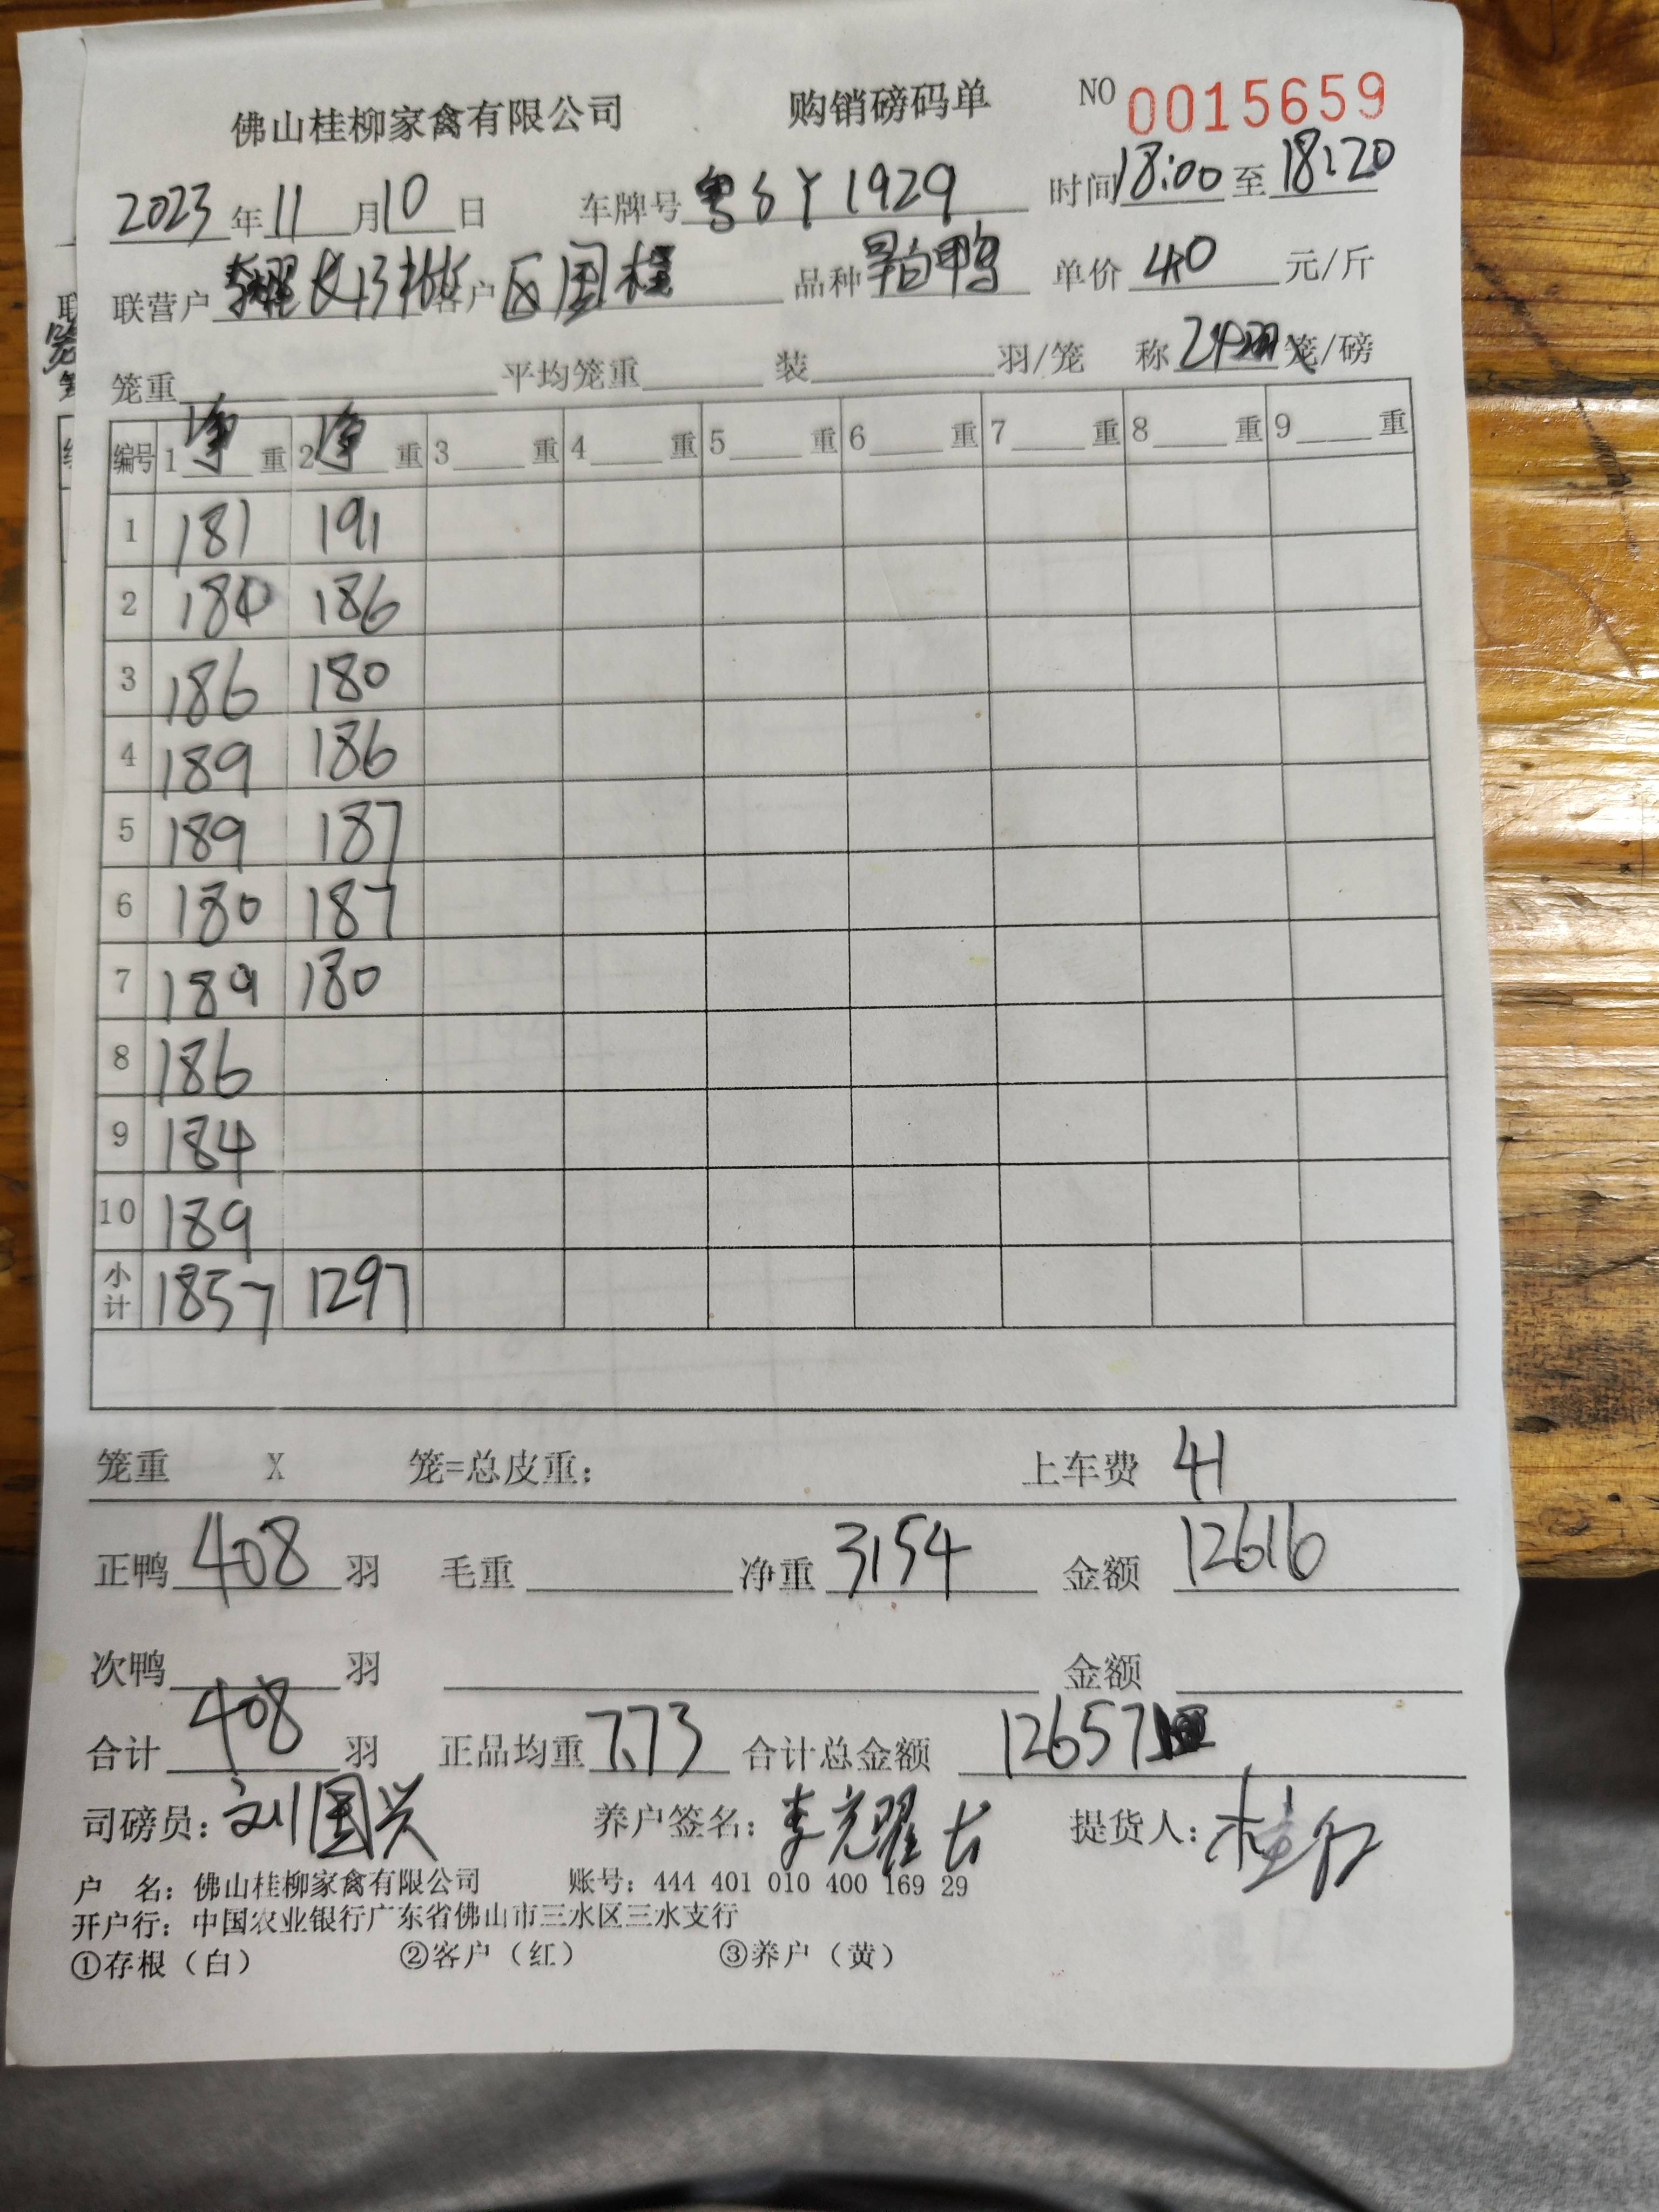 佛山桂柳家禽有限公司 购销磅码单 NO 0015659
2023年11月10日 车牌号 粤SY1929 时间18:00至18:20
联营户 客户 区国桂 品种 鸭 单价 4.0 元/斤
笼重 平均笼重 装 羽/笼 称 笼/磅
编号 1净重 2净重 3重 4重 5重 6重 7重 8重 9重
1 181 191
2 180 186
3 186 180
4 189 186
5 189 187
6 180 187
7 189 180
8 186
9 184
10 189
小计 1857 1297
笼重 X 笼=总皮重: 上车费 41
正鸭 408 羽 毛重 净重 3154 金额 12616
次鸭 羽 金额
合计 408 羽 正品均重 7.73 合计总金额 12657
司磅员:刘国兴 养户签名:李 耀 提货人:
户 名:佛山桂柳家禽有限公司 账号:444 401 010 400 169 29
开户行:中国农业银行广东省佛山市三水区三水支行
①存根(白) ②客户(红) ③养户(黄)